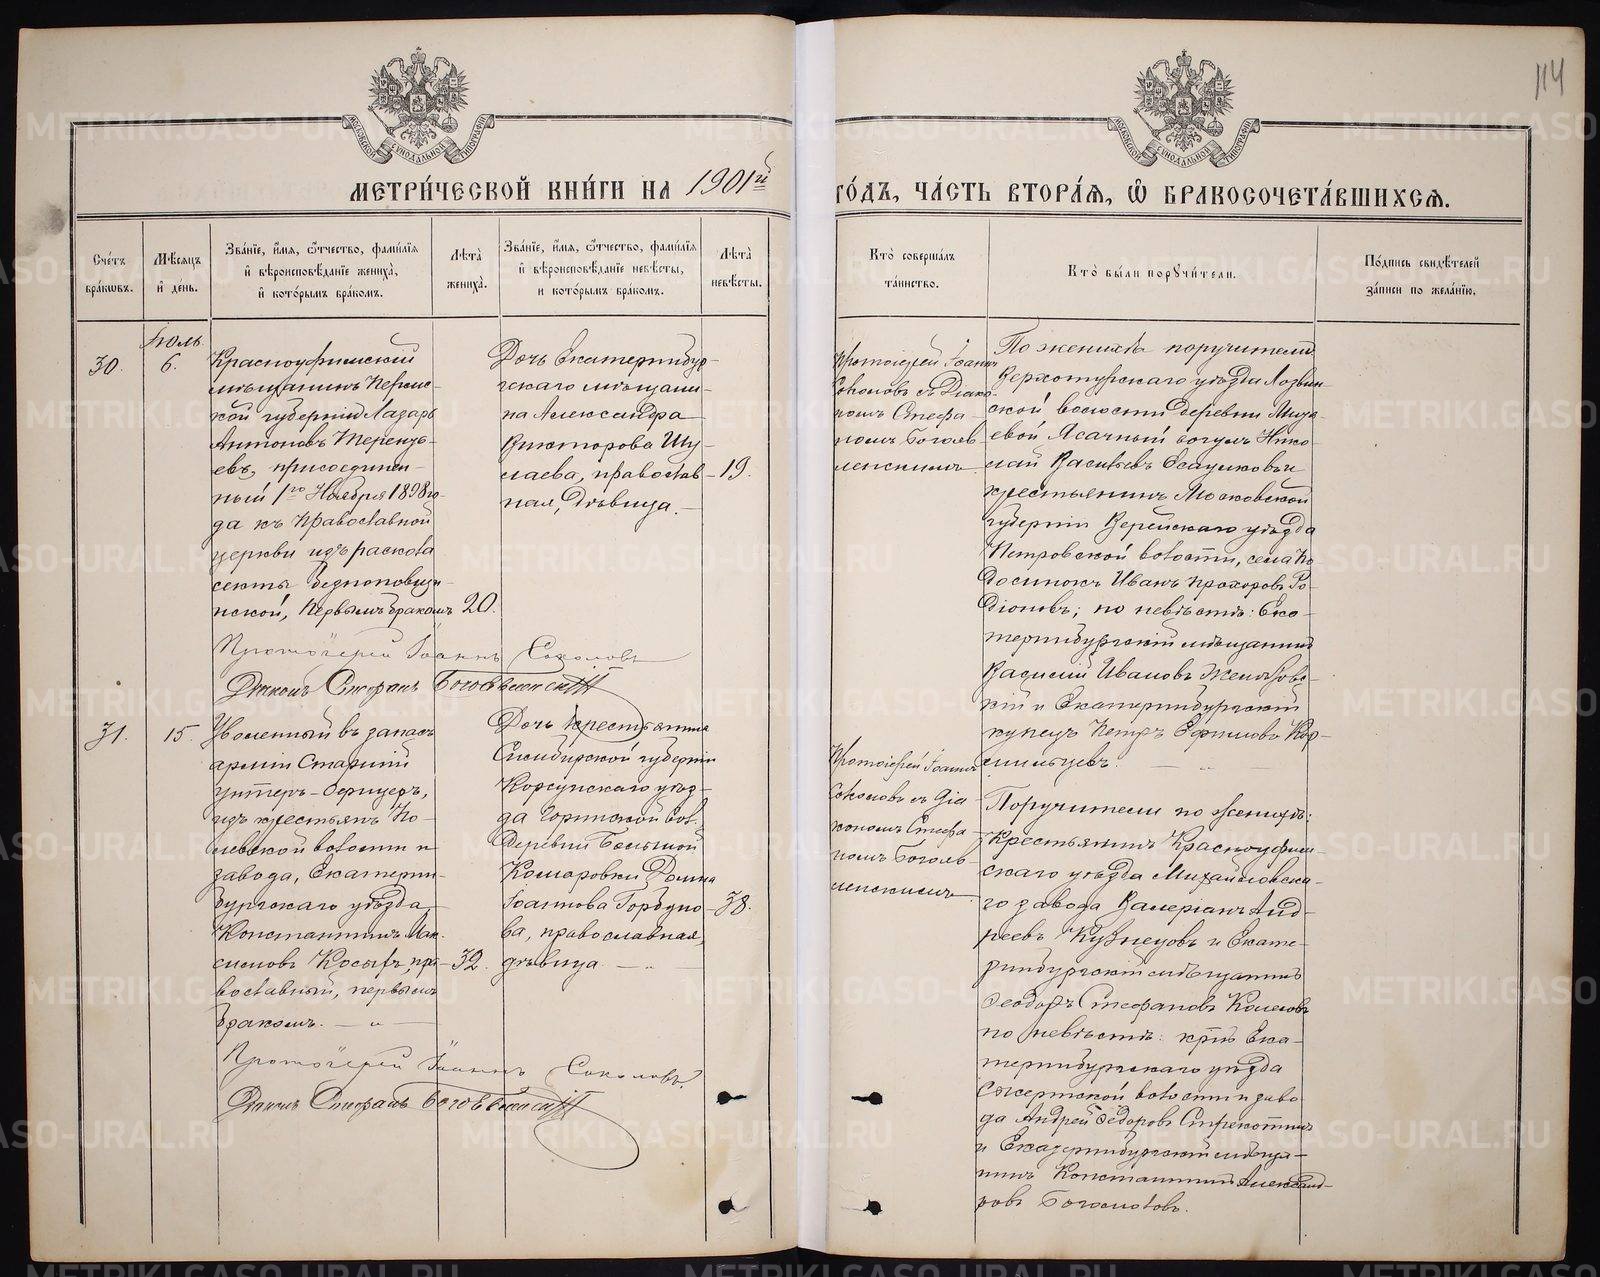 114
МОСКОВСКОЙ СѴНОДАЛЬНОЙ ТИПОГРАФІИ
МОСКОВСКОЙ СѴНОДАЛЬНОЙ ТИПОГРАФІИ
МЕТРИ́ЧЕСКОЙ КНИ́ГИ НА 1901й ГО́ДЪ, ЧА́СТЬ ВТОРА́Ѧ, Ѽ БРАКОСОЧЕТА́ВШИХСѦ.
Сче́тъ бра́кѡвъ.
Мѣ́сяцъ и҆ де́нь.
Зва́нїе, и҆́мѧ, ѻ҆́тчество, фами́лїѧ
и҆ вѣроисповѣ́данїе жениха̀,
и҆ кото́рымъ бра́комъ.
Лѣ́та̀ жениха̀.
Зва́нїе, и҆́мѧ, ѻ҆́тчество, фами́лїѧ
и҆ вѣроисповѣ́данїе невѣ́сты,
и кото́рымъ бра́комъ.
Лѣ́та̀ невѣ́сты.
Кто̀ соверша́лъ та́инство.
Кто̀ бы́ли порꙋчи́тели.
По́дпись свидѣ́телей за́писи по жела́нїю.
30.
Іюль
6.
Красноуфимскій
мѣщанинъ Пермс-
кой губерніи Лазарь
Антоновъ Терентье-
евъ, присоединен-
ный 1го Ноября 1898 го-
да къ Православной
церкви изъ раскола
секты безпоповщи-
нской, первымъ бракомъ
20.
Дочь Екатеринбур-
гскаго мѣщани-
на Александра
Викторова Шу-
лаева, православ-
ная, дѣвица.
19.
Протоіерей Іоаннъ
Соколовъ съ Діако-
номъ Стефа-
номъ Боголѣ-
пенскимъ
По женихѣ поручители
Верхотурскаго уѣзда Лозвин-
ской волости деревни Митя-
евой Ясачный вогулъ Нико-
лай Васильевъ и
крестьянинъ Московской
губерніи Верейскаго уѣзда
Петровской волости, села
Иванъ Прохоровъ Ро-
діоновъ; по невѣстѣ: Ека-
теринбургскій мѣщанинъ
Василій Ивановъ
кій и Екатеринбургскій
купецъ Петръ Ефимовъ Кор-
мильцевъ.
Протоіерей Іоаннъ Соколовъ
Діаконъ Стефанъ
31.
15.
Уволенный въ запасъ
арміи Старшій
унтеръ-офицеръ,
изъ крестьянъ По-
левской волости и
завода, Екатерин-
бургскаго уѣзда
Константинъ Мак-
симовъ Косыхъ, пра-
вославный, первымъ
бракомъ.
32.
Дочь крестьянина
Симбирской губерніи
Корсунскаго уѣз-
да Горинской вол.
деревни Большой
Комаровки Домна
Іоаннова Горбуно-
ва, православная,
дѣвица
38.
Протоіерей Іоаннъ
Соколовъ съ Діа-
кономъ Стефа-
номъ Боголѣ-
пенскимъ
Поручители по женихѣ:
Крестьянинъ Красноуфим-
скаго уѣзда Михайловска-
го завода Валеріанъ Анд-
реевъ Кузнецовъ и Екате-
ринбургскій мѣщанинъ
Феодоръ Стефановъ
по невѣстѣ: крнъ Ека-
теринбургскаго уѣзда
Сысертской волости и заво-
да Андрей Федоровъ Стрекотинъ
и Екатеринбургскій мѣща-
нинъ Константинъ Александ-
ровъ Богомоловъ.
Протоіерей Іоаннъ Соколовъ.
Діаконъ Стефанъ
METRIKI.GASO-URAL.RU